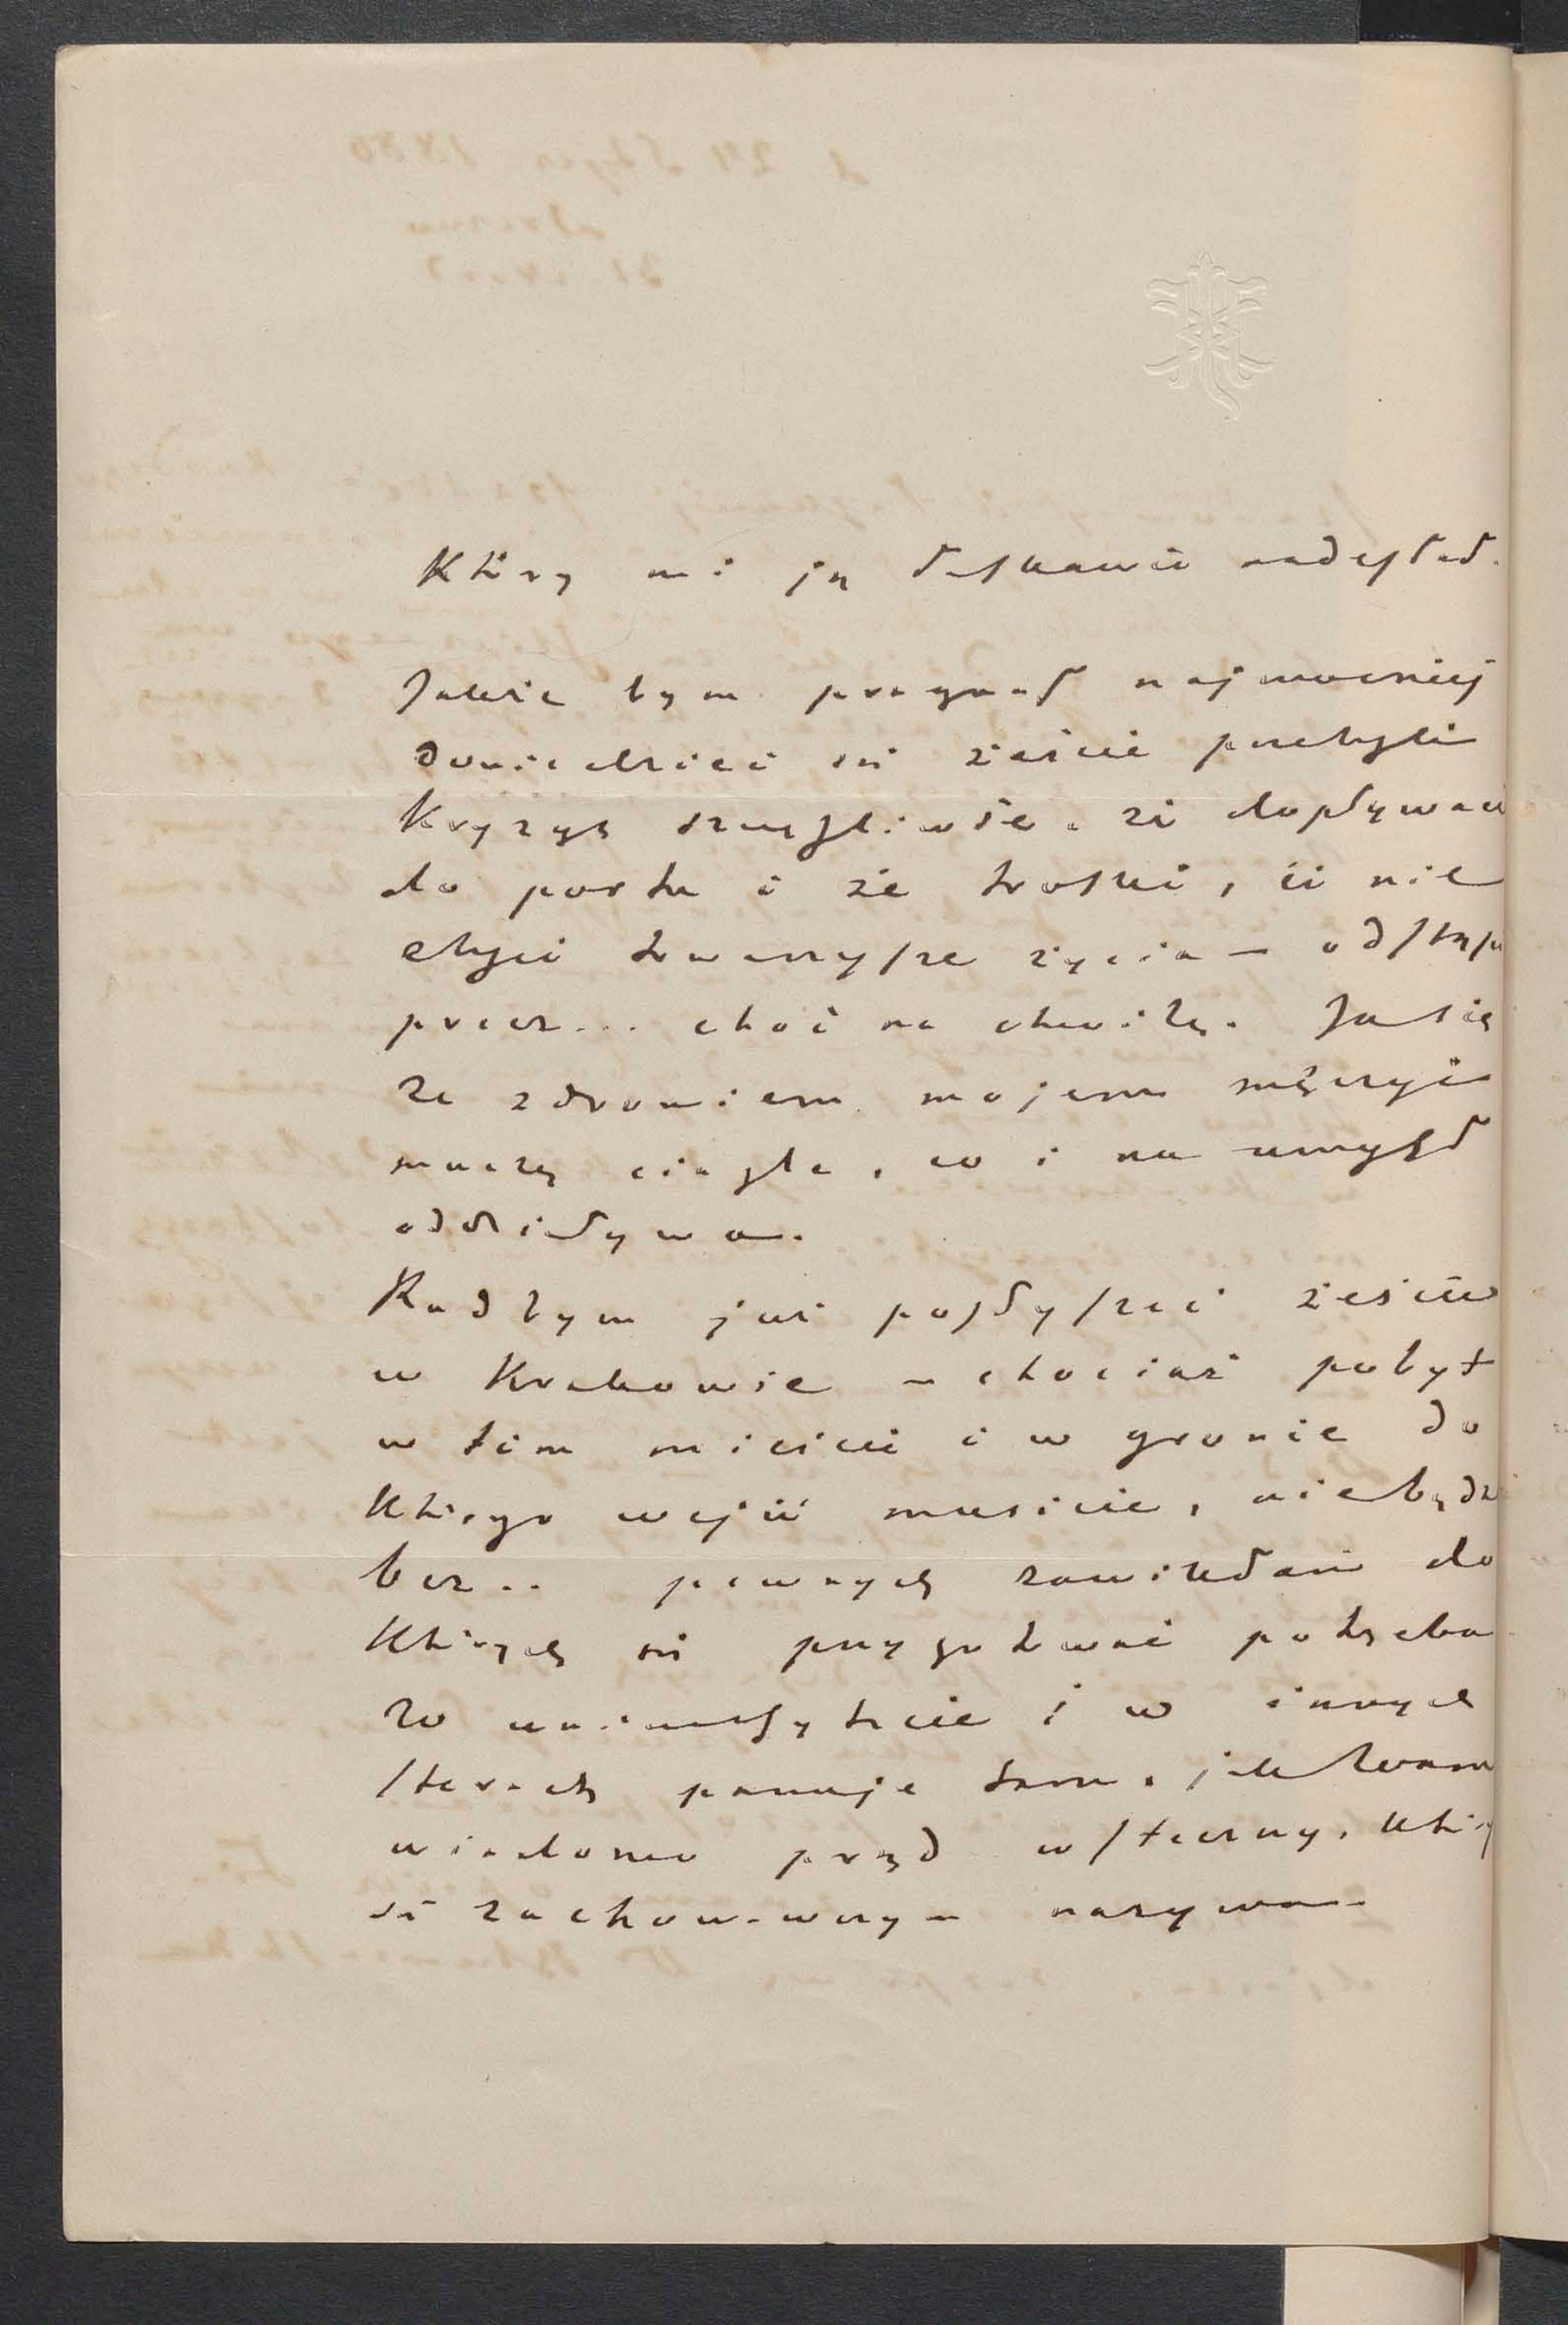 Który mi ją łaskawie nadesłał.
Jakże bym pragnął najmocniej
dowiedzieć się żeście przebyli
kryzys szczęśliwie, że dopływacie
do portu i że troski, ci nie
towarzysze życia — odstąpią
precz... choć na chwilę. Ja się
ze zdrowiem mojem męczyć
muszę ciągle, co i na umysł
oddziaływa.
Rad bym już posłyszeć żeście
w Krakowie — chociaż pobyt
w tem mieście i w gronie do
którego wejść musicie, nie będzie
bez.. pewnych zawikłań do
których się przygotować potrzeba
W uniwersytecie i w innych
sferach panuje tam, jak Wam
wiadomo prąd wsteczny, który
się zachowawczym nazywa